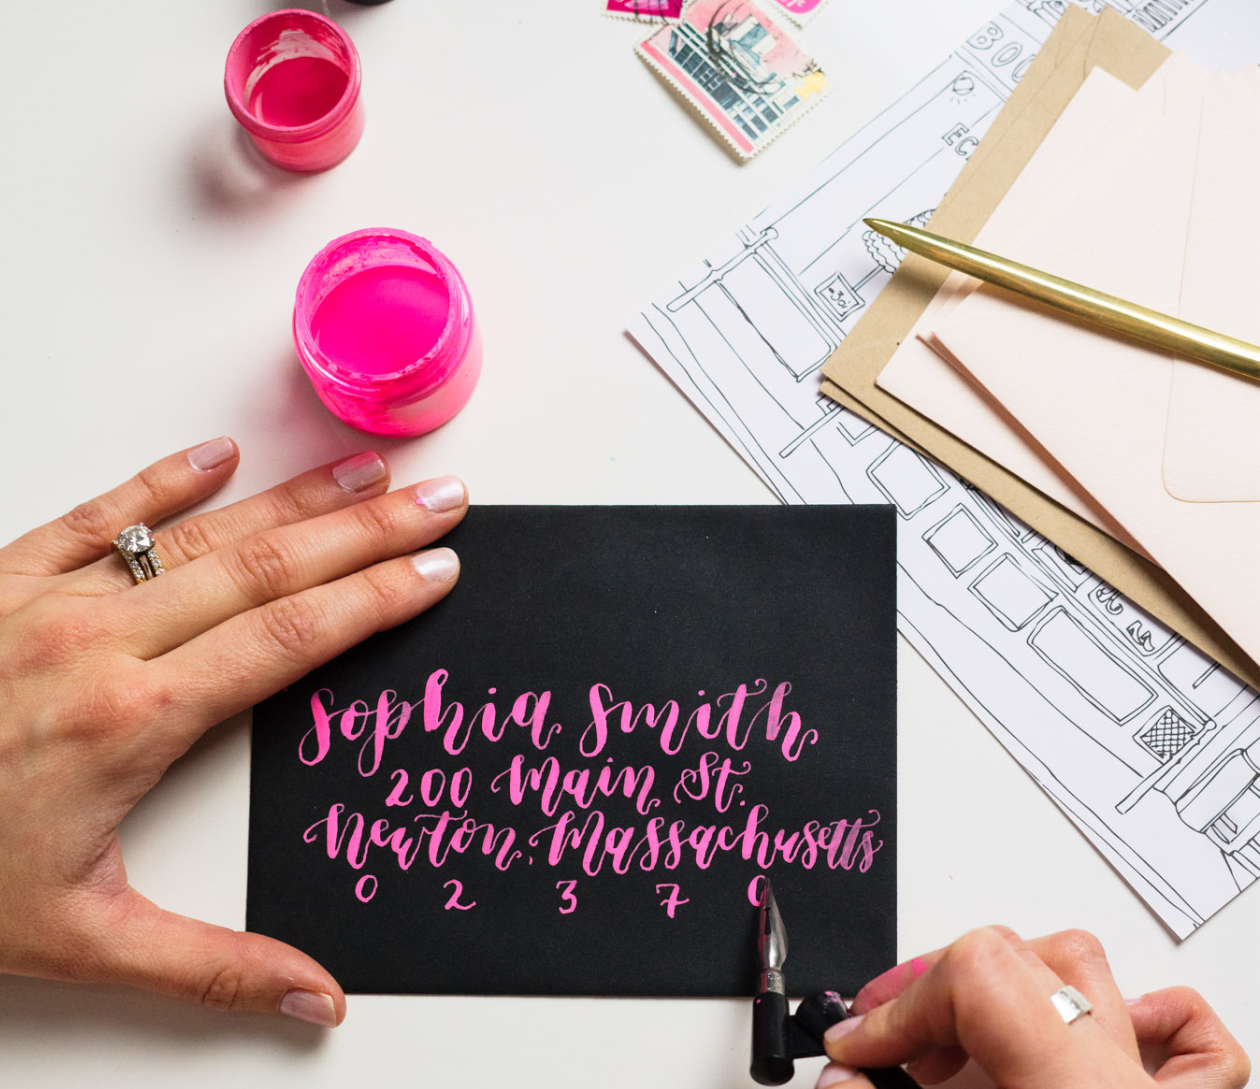 BOU
EC
Sophia Smith
200 Main St.
Newton, Massachusetts
0 2 3 7 0